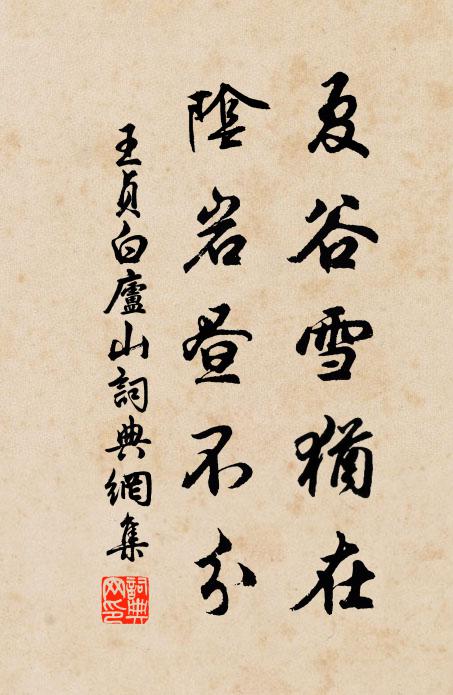 夏谷雪猶在
陰岩晝不分
王貞白廬山詞典網集
詞典網印